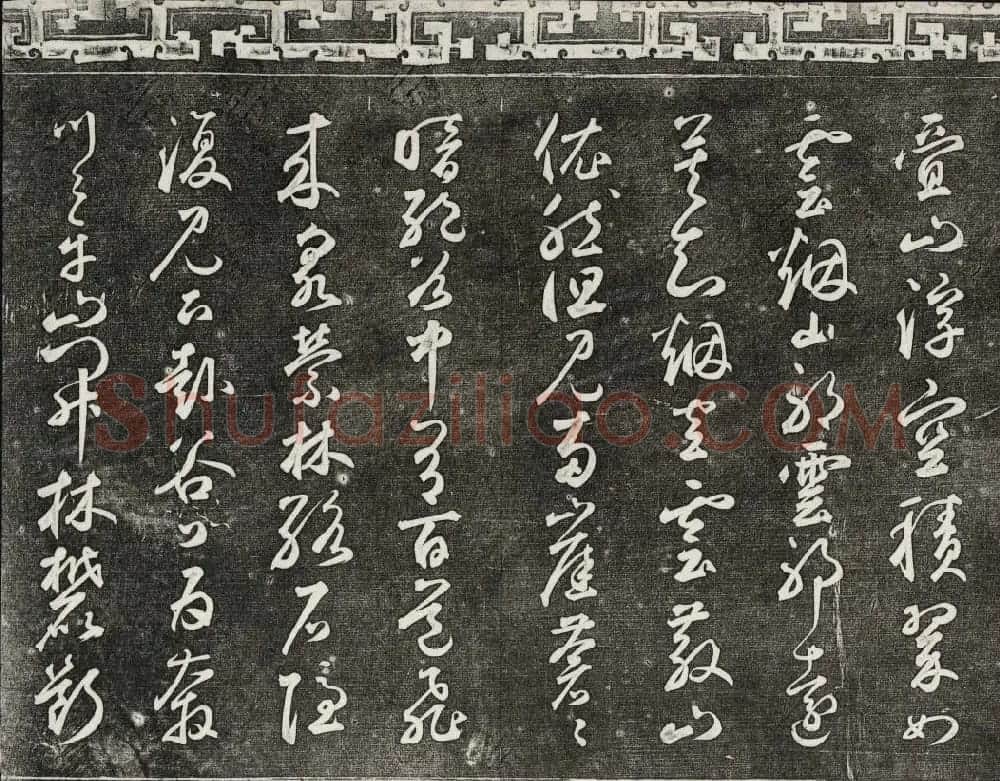 疊山浮空積翠如
雲煙山耶雲耶遠
莫知煙空雲散山
依然但見兩崖蒼〻
暗絕谷中有百道飛
來泉縈林絡石隱
復見下赴谷口為奔
川〻平山開林麓斷
Shufaziliao.COM